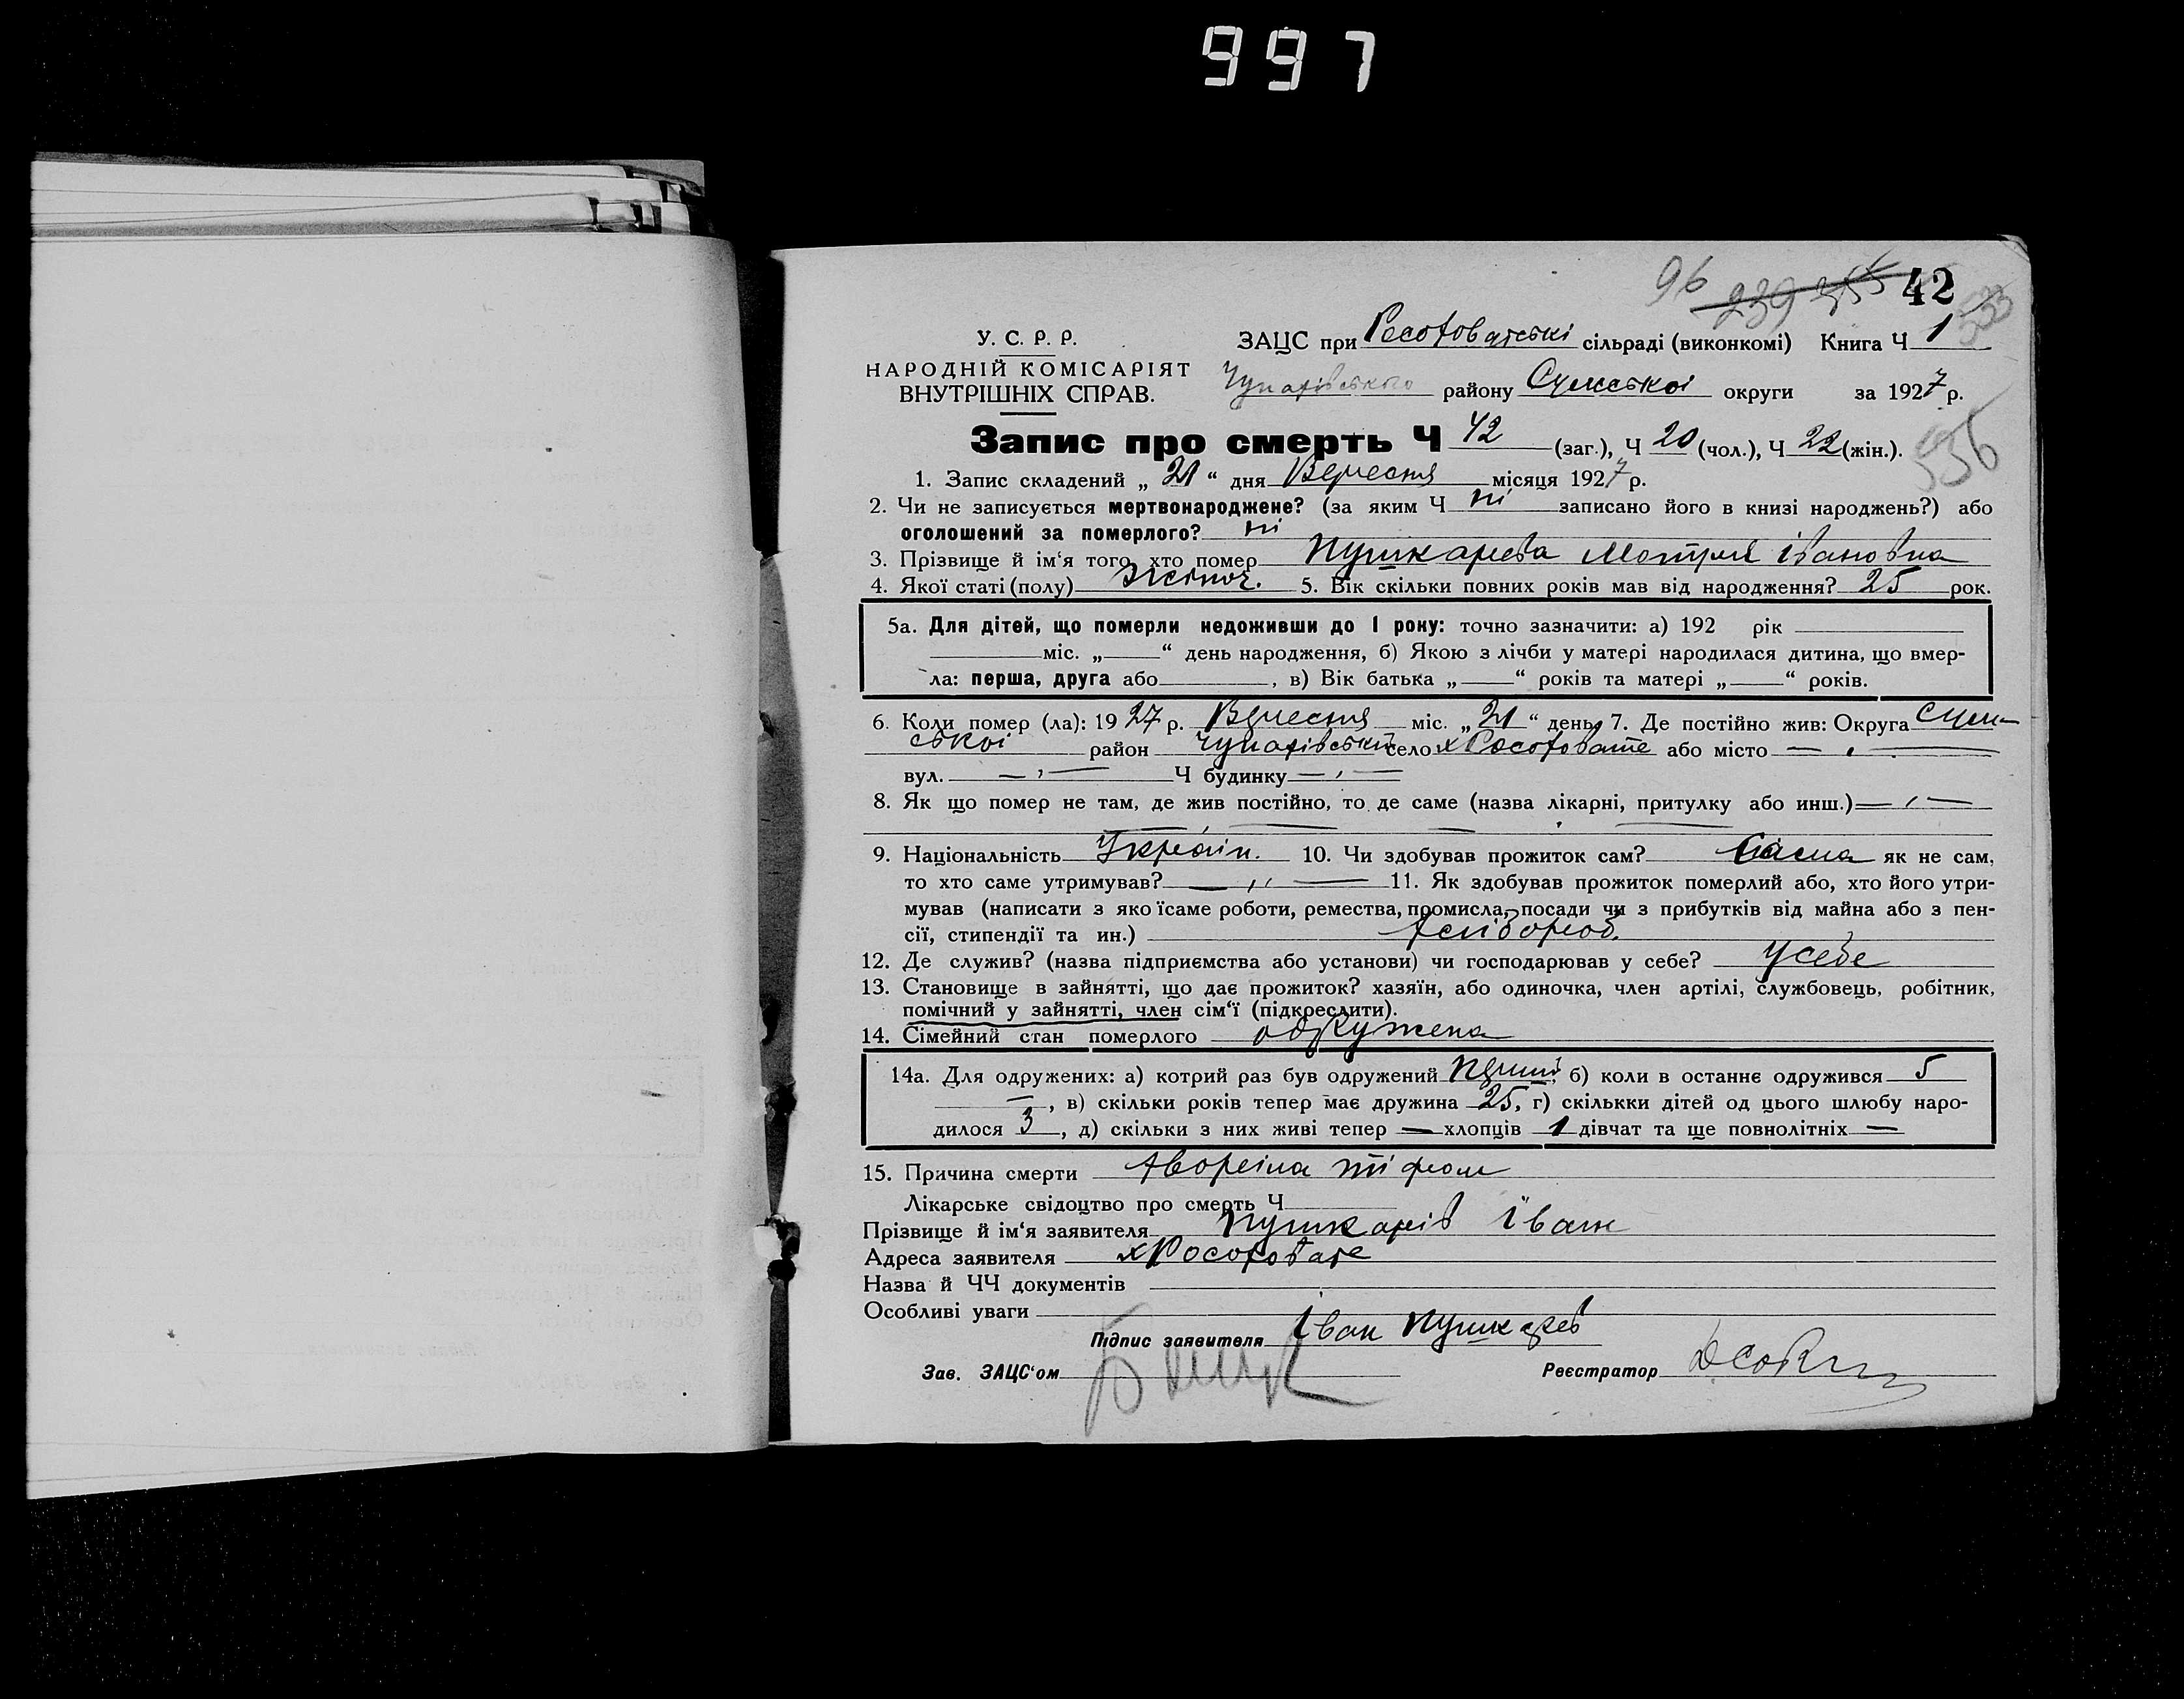 997
96 239 355 42 533
У. С. Р. Р.
НАРОДНІЙ КОМІСАРІЯТ
ВНУТРІШНІХ СПРАВ.
ЗАЦС при сільраді (виконкомі) Книга Ч 1
Чупахівського району Сумської округи за 1927 р.
536
Запис про смерть Ч 42 (заг.), Ч 20 (чол.), Ч 22 (жін.).
1. Запис складений „ 21 “ дня Вересня місяця 1927 р.
2. Чи не записується мертвонароджене? (за яким Ч ні записано його в книзі народжень?) або
оголошений за померлого? ні
3. Прізвище й ім‘я того, хто помер Пушкарева Мотрія Івановна
4. Якої статі (полу) жіноч. 5. Вік скільки повних років мав від народження? 25 рок.
5а. Для дітей, що померли недоживши до 1 року: точно зазначити: а) 192 рік
міс. „ “ день народження, б) Якою з лічби у матері народилася дитина, що вмер-
ла: перша, друга або , в) Вік батька „ “ років та матері „ “ років.
6. Коли помер (ла): 1927 р. Вересня міс. „ 21 “ день 7. Де постійно жив: Округа Сум-
ської район Чупахівський село х Росоховате або місто — , —
вул. — , — Ч будинку — , —
8. Як що помер не там, де жив постійно, то де саме (назва лікарні, притулку або инш.) — , —
9. Національність Україн. 10. Чи здобував прожиток сам? Сама як не сам,
то хто саме утримував? — ,, — 11. Як здобував прожиток померлий або, хто його утри-
мував (написати з якоїсаме роботи, ремества, промисла, посади чи з прибутків від майна або з пен-
сії, стипендії та ин.) хлібороб.
12. Де служив? (назва підприємства або установи) чи господарював у себе? У себе
13. Становище в зайнятті, що дає прожиток? хазяїн, або одиночка, член артілі, службовець, робітник,
помічний у зайнятті, член сім‘ї (підкреслити).
14. Сімейний стан померлого одружена
14а. Для одружених: а) котрий раз був одружений б) коли в останнє одружився 5
— , в) скільки років тепер має дружина 25, г) скількки дітей од цього шлюбу наро-
дилося 3 , д) скільки з них живі тепер — хлопців 1 дівчат та ще повнолітніх —
15. Причина смерти хворіла тіфом
Лікарське свідоцтво про смерть Ч
Прізвище й ім‘я заявителя Пушкарів Іван
Адреса заявителя х Росоховате
Назва й ЧЧ документів
Особливі уваги
Підпис заявителя Іван Пушкарев
Зав. ЗАЦС‘ом Реєстратор